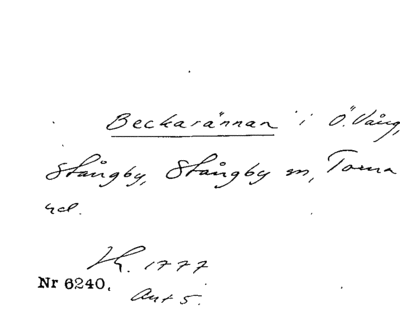 Beckarännan i Ö. Vång,
Stångby, Stångby m, Torna
hd.
Lk. 1777
Nr 6240.
Akt 5.